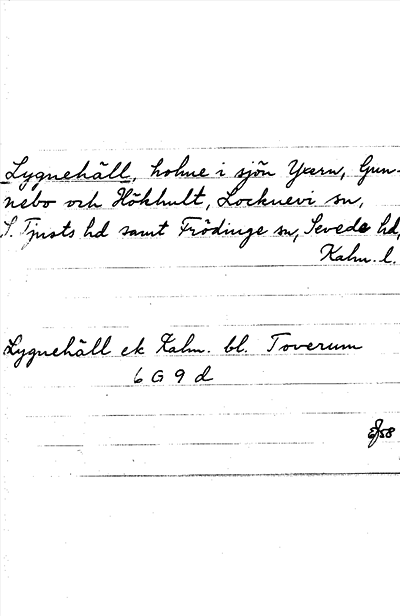 Lygnehäll, holme i sjön Yxern, Gun-
nebo och Hökhult, Locknevi sn,
S. Tjusts hd samt Frödinge sn, Sevede hd,
Kalm. l.
Lygnehäll ek Kalm. bl. Toverum
6 G 9 d
/58